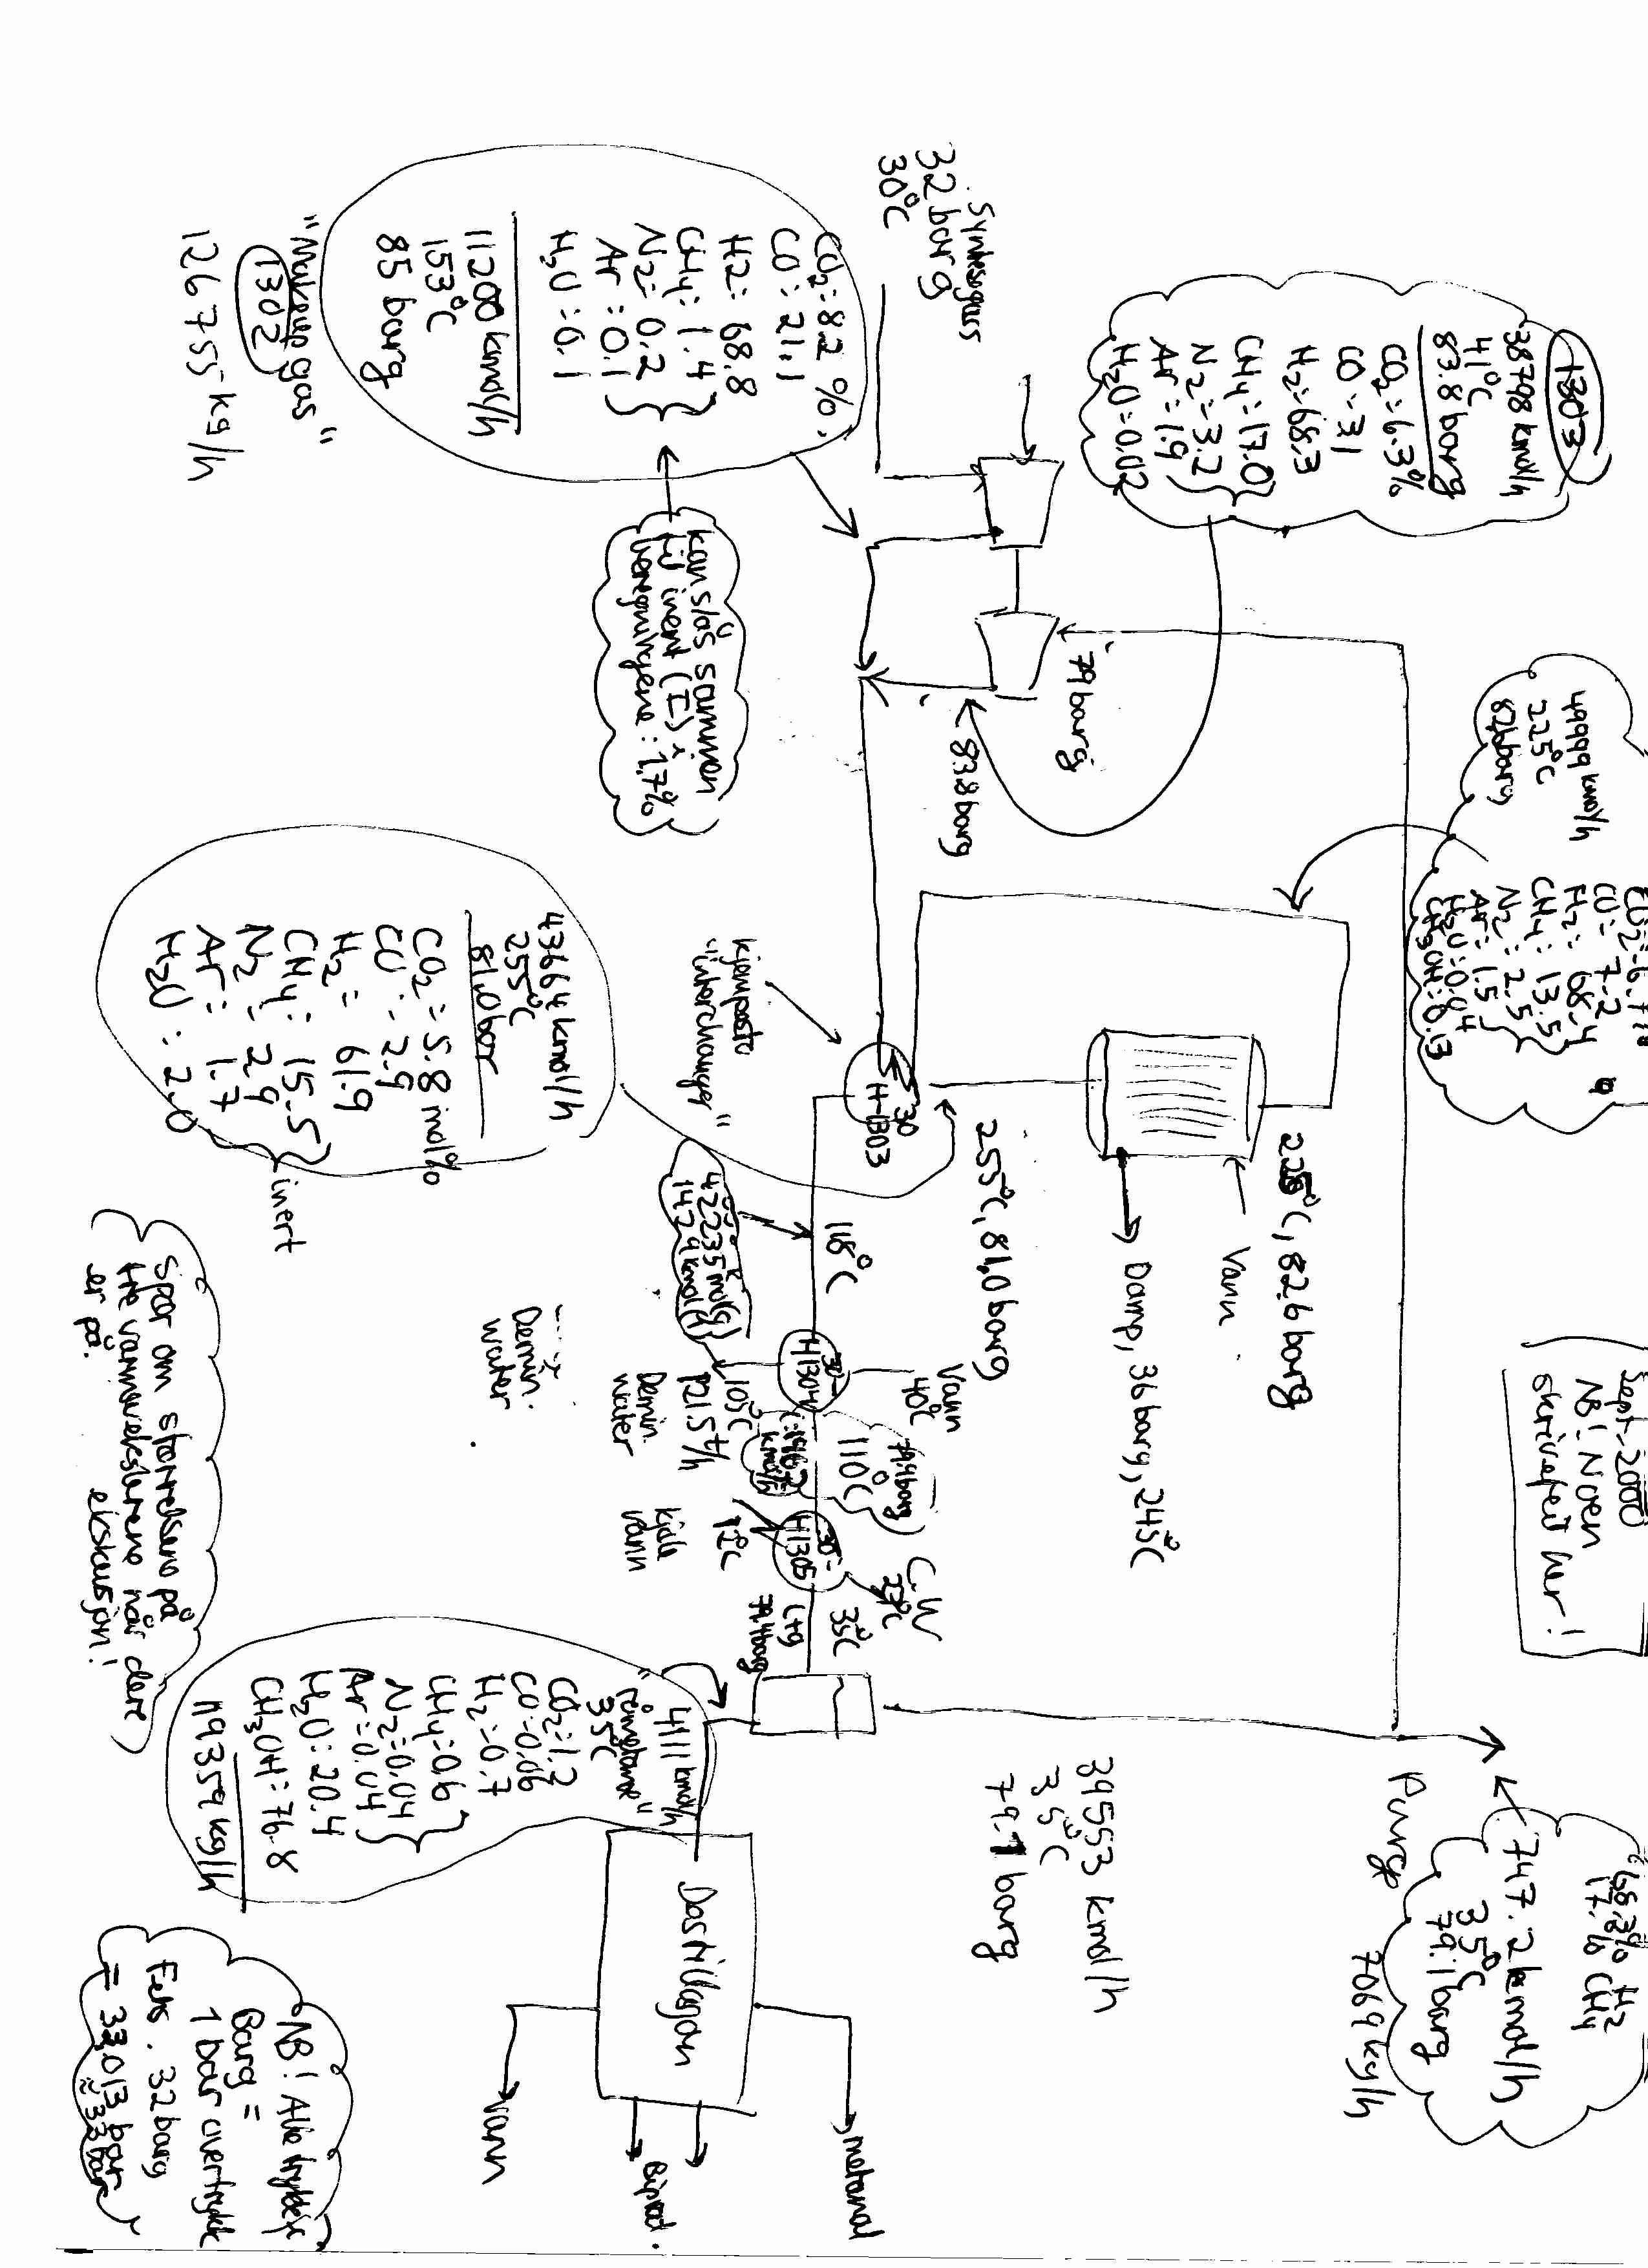 Syntesegass
32 barg
30°C
CO2 = 8.2 %
CO : 21.1
H2 : 68.8
CH4 : 1.4
N2 = 0.2
Ar : 0.1
H2O : 0.1
11200 kmol/h
153°C
85 barg
"Makeup gas"
1302
126755 kg/h
1303
38798 kmol/h
41°C
83.8 barg
CO2 = 6.3%
CO = 3.1
H2 = 68.3
CH4 = 17.0
N2 = 3.2
Ar = 1.9
H2O = 0.02
kan slås sammen
til inert (I)
79 barg
83.8 barg
49999 kmol/h
225°C
CO = 7.2
H2 = 68.4
CH4 : 13.5
N2 : 2.5
Ar : 1.5
H2O = 0.04
CH3OH : 0.13
43664 kmol/h
255°C
81,0 bar
CO2 = 5.8 mol%
CO : 2.9
H2 = 61.9
CH4 : 15.5
N2 : 2.9
Ar : 1.7
H2O : 2.0
inert
kjempesto
"interchanger"
30
H-1303
255°C, 81,0 barg
225°C, 82.6 barg
Vann
Damp, 36 barg, 245°C
118°C
42235 mol(g)
1429 kmol(l)
30-
H1304
Vann
40°C
105°C
1215 t/h
Demin.
water
Demin.
water
79.4 barg
110°C
30-
H1305
C.W
Kjøle
vann
35°C
L+g
39553 kmol/h
35°C
79.1 barg
Purge
68.3% H2
17.% CH4
747.2 kmol/h
35°C
79.1 barg
7069 kg/h
Sept-2000
NB! Noen
skrivefeil her!
4111 kmol/h
"råmetanol"
35°C
CO2 = 1.2
CO = 0.06
H2 = 0.7
CH4 = 0.6
N2 = 0.04
Ar = 0.04
H2O = 20.4
CH3OH = 76.8
119359 kg/h
Destillasjon
metanol
Biprod.
Vann
Spør om størrelsene på
varmevekslerene når dere
er på ekskursjon!
NB! Alle trykk er
Barg =
1 bar overtrykk
F.eks. 32 barg
= 33.013 bar
≈ 33 bar